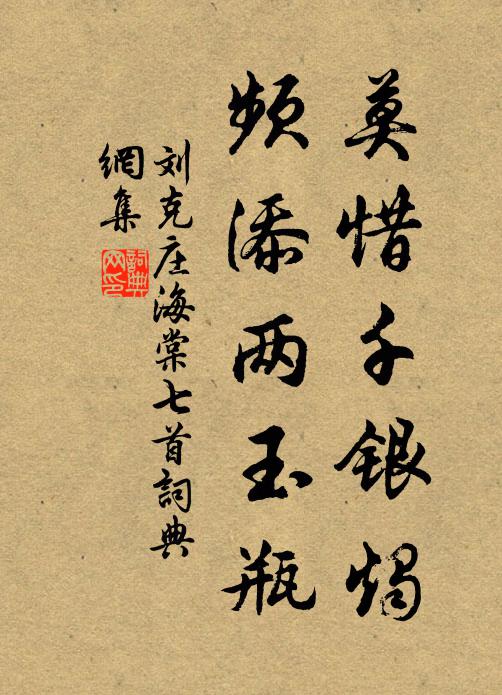 莫惜千银烛
频添两玉瓶
刘克庄海棠七首詞典
網集
詞典网印